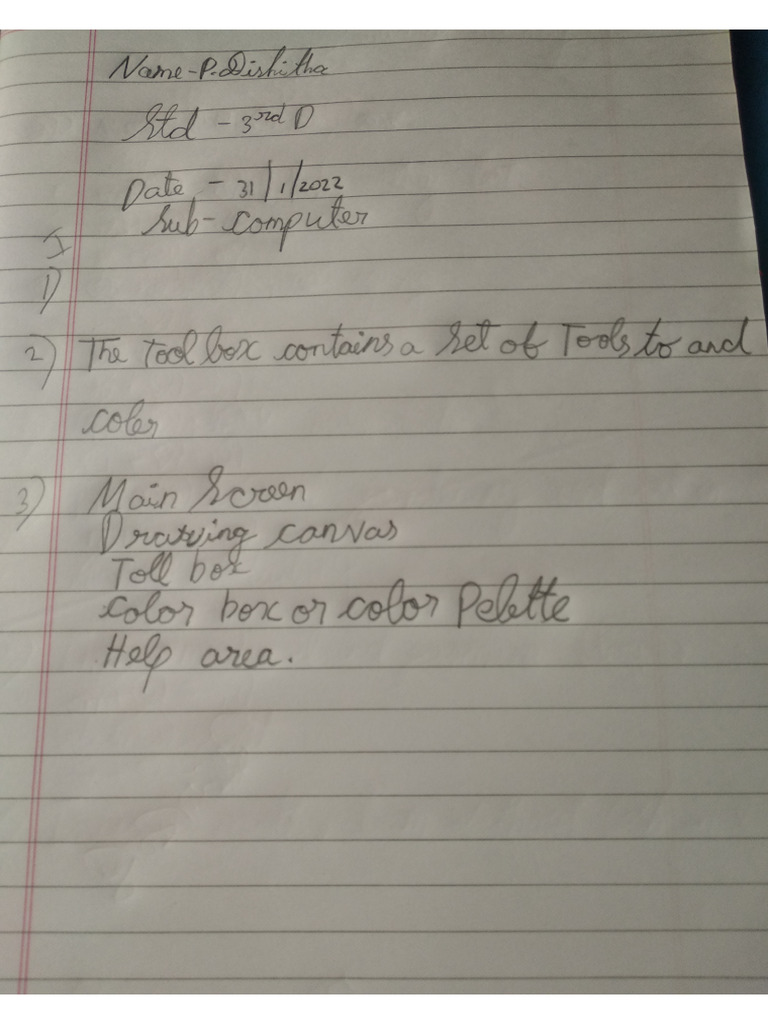 Name-P.Dishitha
Std - 3rd D
Date - 31/1/2022
Sub- computer
I
1)
2) The Tool box contains a set of Tools to and
coler
3) Main Screen
Drawing canvas
Toll box
color box or color Pelette
Help area.